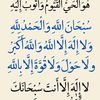 هُوَ الْحَيُّ الْقَيُّومُ وَأَتُوبُ إِلَيْهِ
سُبْحَانَ اللَّهِ وَالْحَمْدُ لِلَّهِ
وَلَا إِلَهَ إِلَّا اللَّهُ وَاللَّهُ أَكْبَرُ
وَلَا حَوْلَ وَلَا قُوَّةَ إِلَّا بِاللَّهِ
لَا إِلَهَ إِلَّا أَنْتَ سُبْحَانَكَ